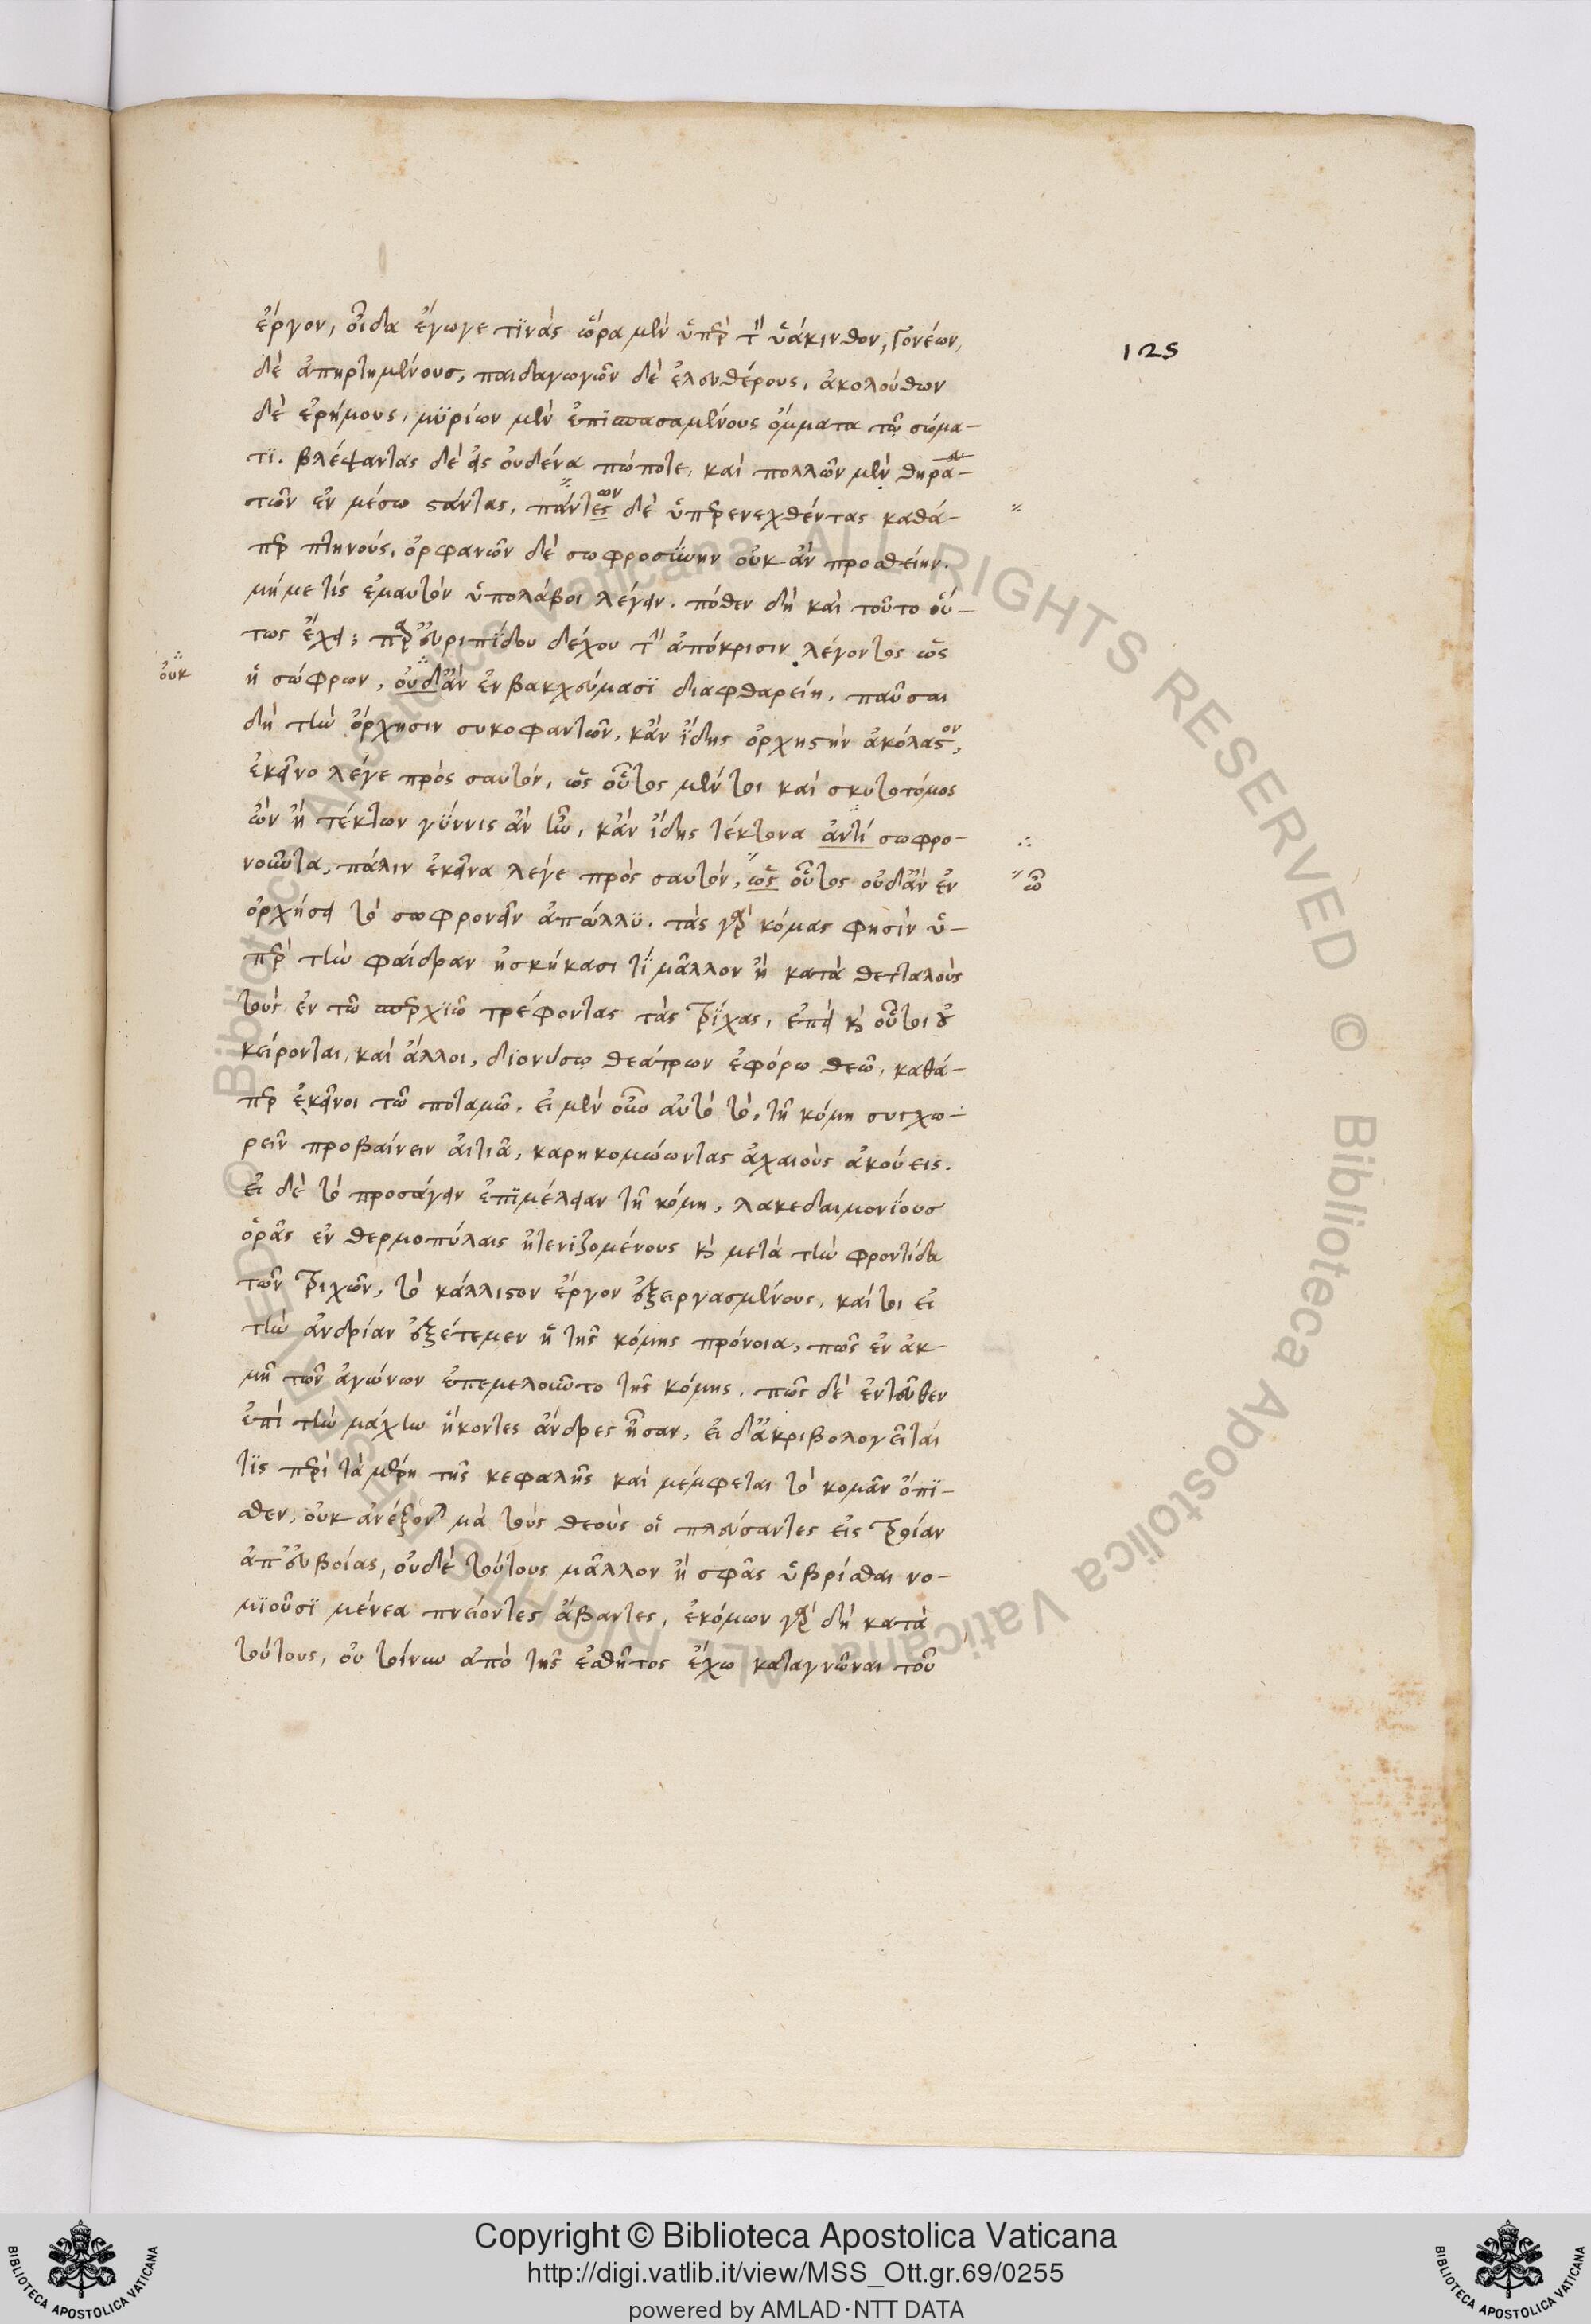 125
ἔργον, οἶδα ἔγωγέ τινας ὥρα μὲν ὑπὲρ τὸν ὑάκινθον, γονέων,
δὲ ἀπηρτημένους, παιδαγωγῶν δὲ ἐλευθέρους, ἀκολούθων
δὲ ἐρήμους, μυρίων μὲν ἐπισπασαμένους ὄμματα τῶ σώμα-
τι. βλέψαντας δὲ εἰς οὐδένα πώποτε, καὶ πολλῶν μὲν θηρα-
τῶν ἐν μέσω στάντας, πάντες ων δὲ ὑπερενεχθέντας καθά-
περ πτηνούς, ὀρφανῶν δὲ σωφροσύνην οὐκ ἂν προσθείην.
μήμε τίς ἐμαυτὸν ὑπολάβοι λέγειν. πόθεν δὴ καὶ τοῦτο οὕ-
τως ἔχει; παρ' εὐριπίδου δέχου τὴν ἀπόκρισιν λέγοντος ὡς
οὐκ
ἡ σώφρων, οὐδ' ἂν ἐν βακχεύμασι διαφθαρείη. παῦσαι
δὴ τὴν ὄρχησιν συκοφαντῶν, κἂν ἴδης ὀρχηστὴν ἀκόλαστον,
ἐκεῖνο λέγε πρὸς σαυτόν, ὡς οὗτος μέν τοι καὶ σκυτοτόμος
ὢν ἢ τέκτων γύννις ἂν ἦν, κἂν ἴδης τέκτονα ἀντὶ σωφρο-
νοῦντα, πάλιν ἐκεῖνα λέγε πρὸς σαυτόν, ὡς οὗτος οὐδ' ἂν ἐν
ὀρχήσει τὸ σωφρονεῖν ἀπώλλυ. τὰς γὰρ κόμας φησὶν ὑ-
πὲρ τὴν φαίδραν ἠσκήκασι τί μᾶλλον ἢ κατὰ θετταλοὺς
τοὺς ἐν τῶ σπερχιῶ τρέφοντας τὰς τρίχας, ἐπεὶ καὶ οὗτοι οὐ
κείρονται, καὶ ἄλλοι, διονύσω θεάτρων ἐφόρω θεῶ, καθά-
περ ἐκεῖνοι τῶ ποταμῶ. εἰ μὲν οὖν αὐτὸ τὸ, τῇ κόμη συγχω-
ρεῖν προβαίνειν αἰτιᾶ, καρηκομώωντας ἀχαιοὺς ἀκούεις.
εἰ δὲ τὸ προσάγειν ἐπιμέλειαν τῇ κόμη, λακεδαιμονίους
ὁρᾶς ἐν θερμοπύλαις κτενιζομένους καὶ μετὰ τὴν φροντίδα
τῶν τριχῶν, τὸ κάλλιστον ἔργον ἐξειργασμένους, καίτοι εἰ
τὴν ἀνδρίαν ἐξέτεμεν ἡ τῆς κόμης πρόνοια, πῶς ἐν ἀκ-
μῇ τῶν ἀγώνων ἐπεμελοῦντο τῆς κόμης. πῶς δὲ ἐντεῦθεν
ἐπὶ τὴν μάχην ἥκοντες ἄνδρες ἦσαν, εἰ δ' ἀκριβολογεῖταί
τις περὶ τὰ μέρη τῆς κεφαλῆς καὶ μέμφεται τὸ κομᾶν ὄπι-
σθεν, οὐκ ἀνέξονται μὰ τοὺς θεοὺς οἱ πλεύσαντες εἰς τροίαν
ἀπ' εὐβοίας, οὐδὲ τούτους μᾶλλον ἢ σφᾶς ὑβρίσθαι νο-
μιοῦσι μένεα πνείοντες ἄβαντες, ἐκόμων γὰρ δὴ κατὰ
τούτους, οὐ τοίνυν ἀπὸ τῆς ἐσθῆτος ἔχω καταγνῶναι τοῦ
Copyright © Biblioteca Apostolica Vaticana
http://digi.vatlib.it/view/MSS_Ott.gr.69/0255
powered by AMLAD·NTT DATA